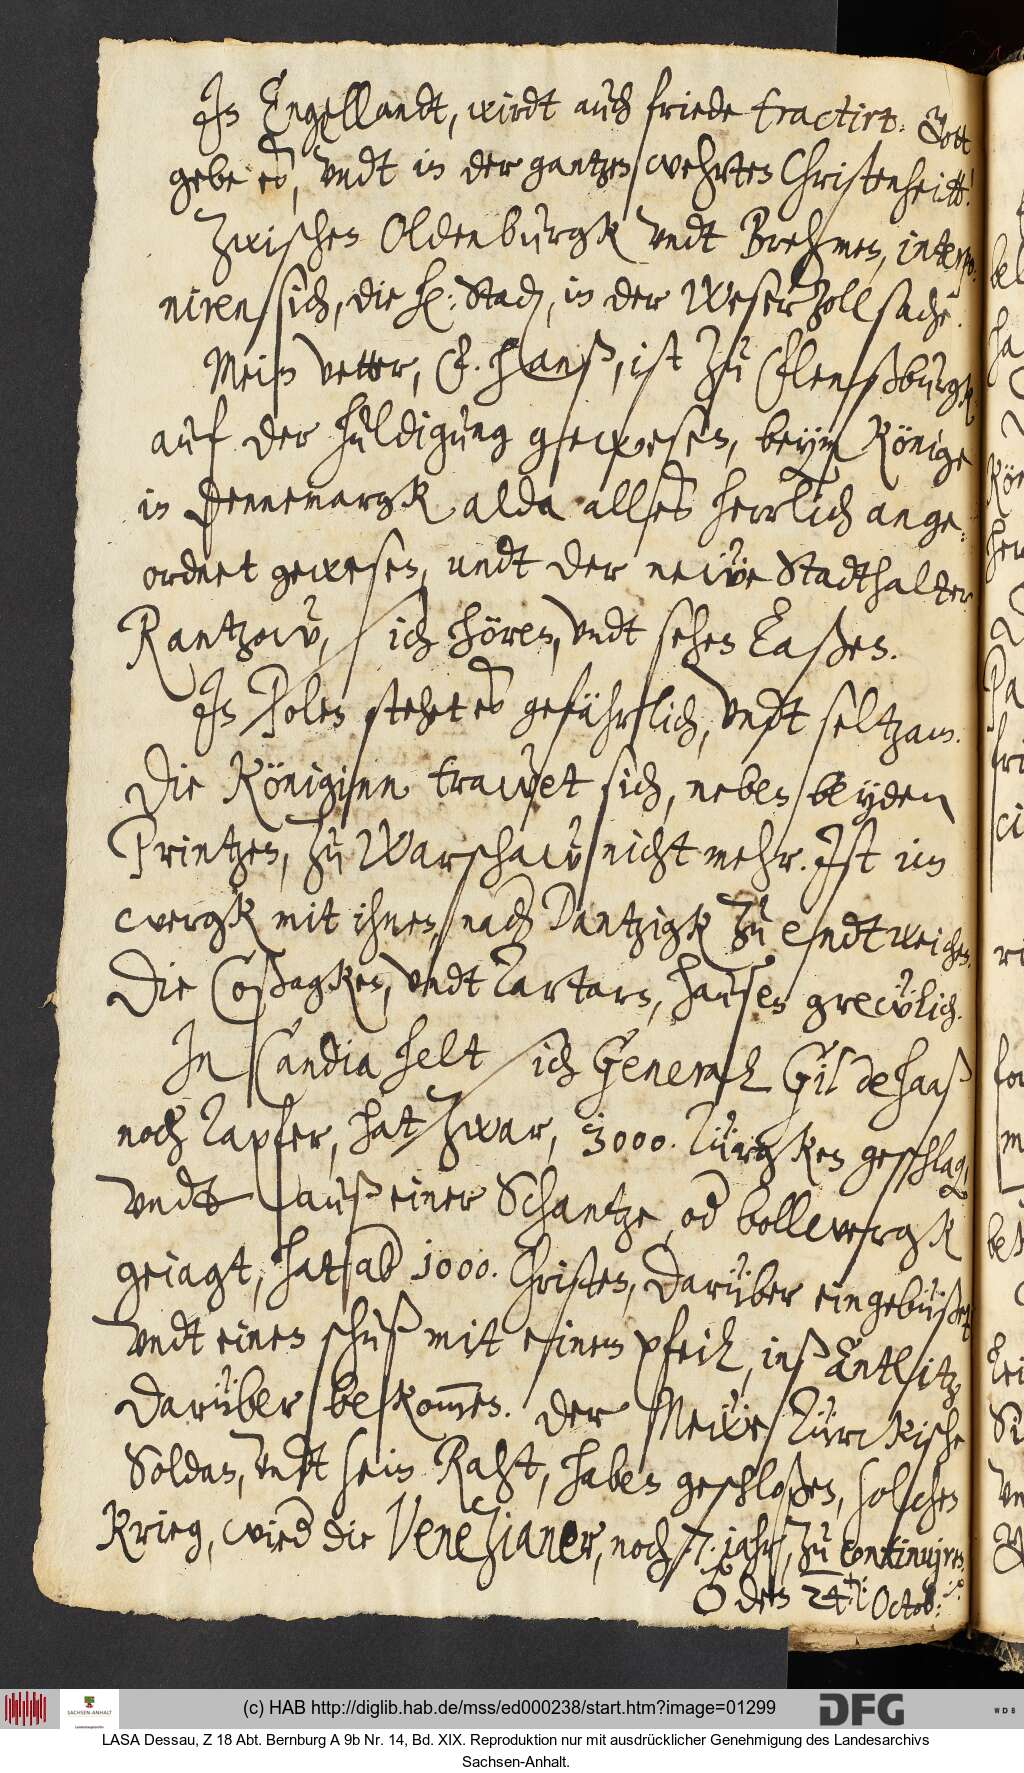 In Engellandt, wirdt auch friede tractirt. Gott
gebe es, undt in der gantzen wehrten Christenheitt!
Zwischen Oldenburgk undt Brehmen, interpo-
niren sich, die H: Stad, in der Weser Zoll sache.
Mein vetter, F. Hanß, ist zu Flenßburgk
auf der huldigung gewesen, beym Könige
in Dennemargk alda alles herrlich ange-
ordnet gewesen, undt der newe Stadthalter
Rantzow, sich hören, undt sehen laßen.
In Polen stehet es gefährlich, undt seltzam.
Die Königinn trawet sich, neben beyden
Printzen, zu Warschaw nicht mehr. Ist im
wergk mit ihnen, nach Dantzigk zu endtweichen.
Die Coßagken, undt Tartarn, hausen grewlich.
In Candia helt sich General Gil de Haaß
noch tapfer, hat zwar, 3000. Türgken geschlagen
undt auß einer Schantze od bollwergk
geiagt, hat ab 1000. Christen, darüber eingebüßet
undt einen schuß mit einem pfeil, inß Antlitz
darüber bekommen. Der Newe Türckische
Soldan, undt sein Raht, haben geschloßen, solchen
Krieg, wied die Venezianer, noch 7. iahr, zu continuiren.
den 24. Octob:
(c) HAB http://diglib.hab.de/mss/ed000238/start.htm?image=01299
SACHSEN-ANHALT
DFG
WDB
LASA Dessau, Z 18 Abt. Bernburg A 9b Nr. 14, Bd. XIX. Reproduktion nur mit ausdrücklicher Genehmigung des Landesarchivs
Sachsen-Anhalt.